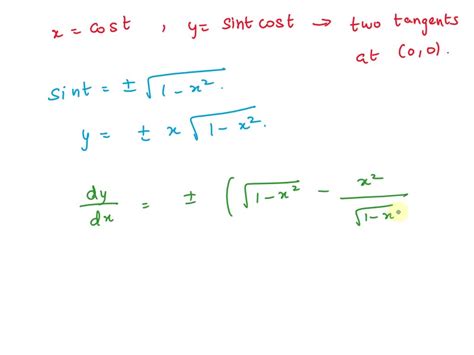 x = cost , y = sint cost → two tangents
at (0,0).
sint = ± √1 - x².
y = ± x √1 - x².
dy/dx = ± ( √1 - x² - x²/√1 - x